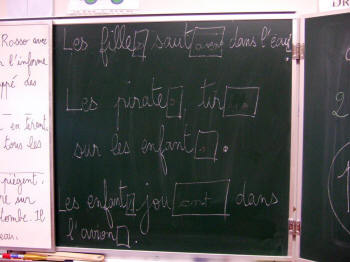 Rosso avec
l'informe
appé des
en tirant
tous les
piègent,
re sur
lombe. Il
eau.
Les filles sautaient dans l'eau.
Les pirates, tir
sur les enfants.
Les enfants jou ont dans
l'avion.
DR
2